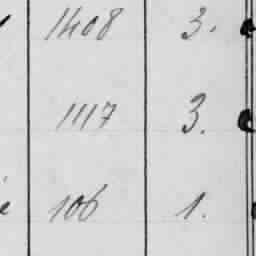 1408 3.
1117 3.
106 1.